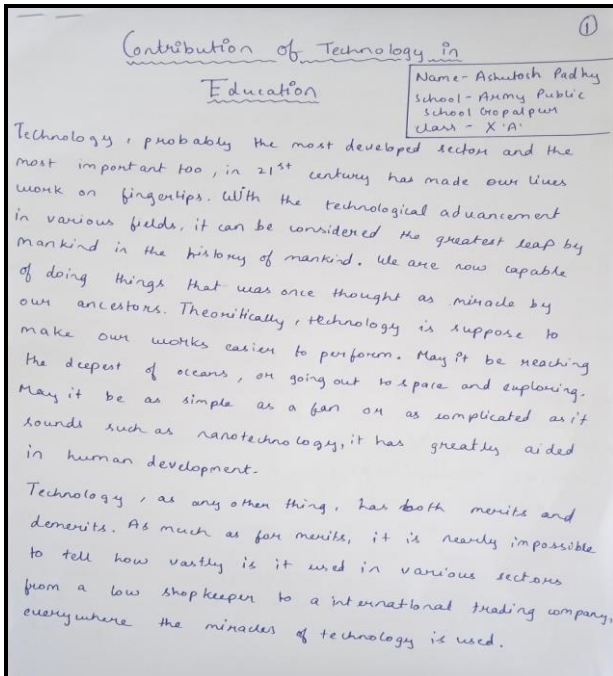 1
Contribution of Technology in
Education
Name- Ashutosh Padhy
School- Army Public
School Gopalpur
Class - X 'A'
Technology, probably the most developed sector and the
most important too, in 21st century has made our lives
work on fingertips. With the technological advancement
in various fields, it can be considered the greatest leap by
mankind in the history of mankind. We are now capable
of doing things that was once thought as miracle by
our ancestors. Theoritically, technology is suppose to
make our works easier to perform. May it be reaching
the deepest of oceans, or going out to space and exploring.
May it be as simple as a fan or as complicated as it
sounds such as nanotechnology, it has greatly aided
in human development.
Technology, as any other thing, has both merits and
demerits. As much as for merits, it is nearly impossible
to tell how vastly is it used in various sectors
from a low shopkeeper to a international trading company,
everywhere the miracles of technology is used.